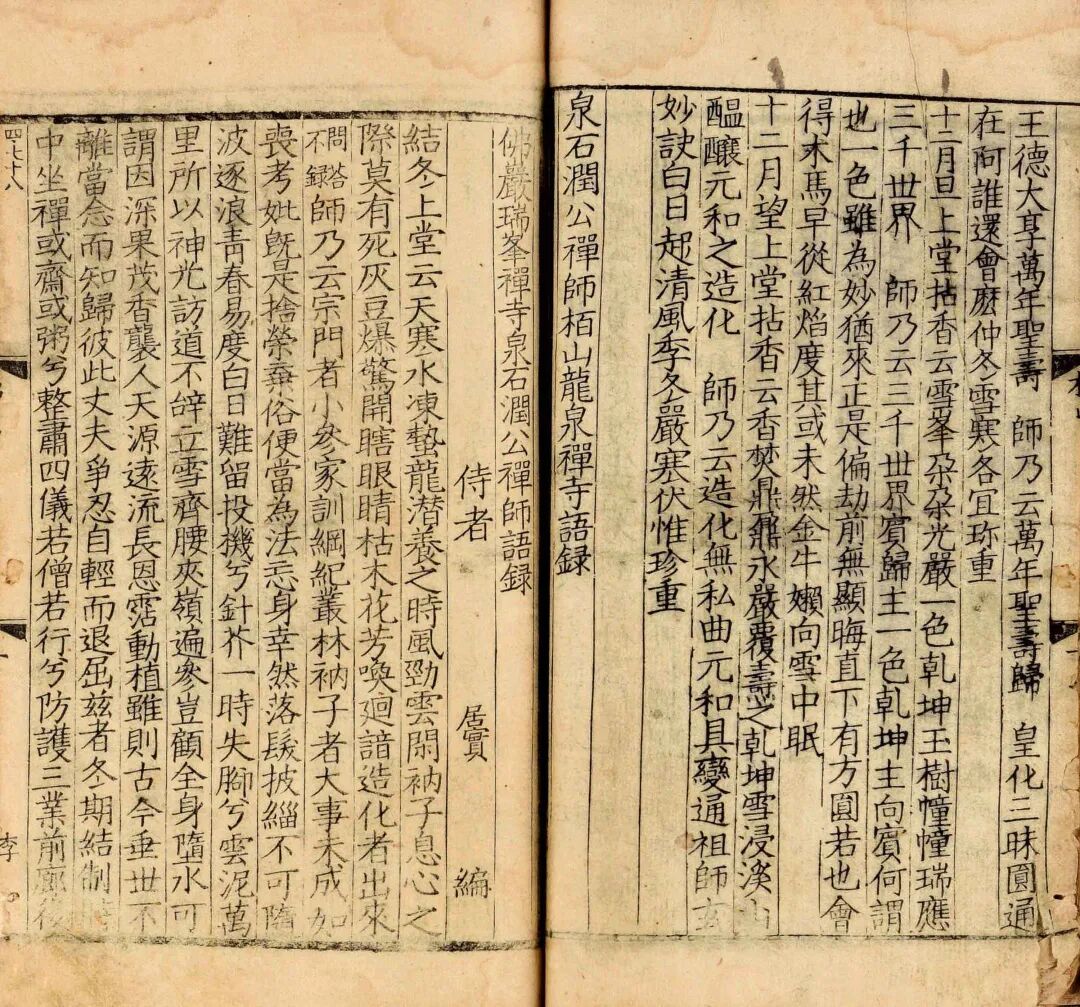 王德大享萬年聖壽　師乃云萬年聖壽歸　皇化三昧圓通
在阿誰還會麽仲冬雪寒各宜珎重
十二月旦上堂拈香云雪峯朶朶光嚴一色乹坤王樹幢幢瑞應
三千世界　師乃云三千世界賔歸主一色乹坤主向賔何謂
也一色雖為妙猶來正是偏劫前無顯晦直下有方圓若也會
得木馬早從紅焰度其或未然金牛嬾向雪中眠
十二月望上堂拈香云香焚鼎鼐永嚴覆壽之乹坤雪浸溪山
醖釀元和之造化　師乃云造化無私曲元和具變通祖師玄
妙訣白日起清風季冬嚴寒伏惟珍重
泉石潤公禪師栢山龍泉禪寺語録
佛巖瑞峯禪寺泉石潤公禪師語録
侍者　居實　編
結冬上堂云天寒水凍蟄龍潜養之時風勁雲閑衲子息心之
際莫有死灰豆爆驚開瞎眼睛枯木花芳喚廻諳造化者出來
問荅不録師乃云宗門者小參家訓綱紀叢林衲子者大事未成如
喪考妣旣是捨榮棄俗便當為法忘身幸然落髮披緇不可隨
波逐浪青春易度白日難留投機兮針芥一時失脚兮雲泥萬
里所以神光訪道不辝立雪齊腰夾嶺遍參豈顧全身墮水可
謂因深果茂香襲人天源遠流長恩霑動植雖則古今垂世不
離當念而知歸彼此丈夫爭忍自輕而退屈兹者冬期結制
中坐禪或齋或粥兮整肅四儀若僧若行兮防護三業前廊後
四七十八
李